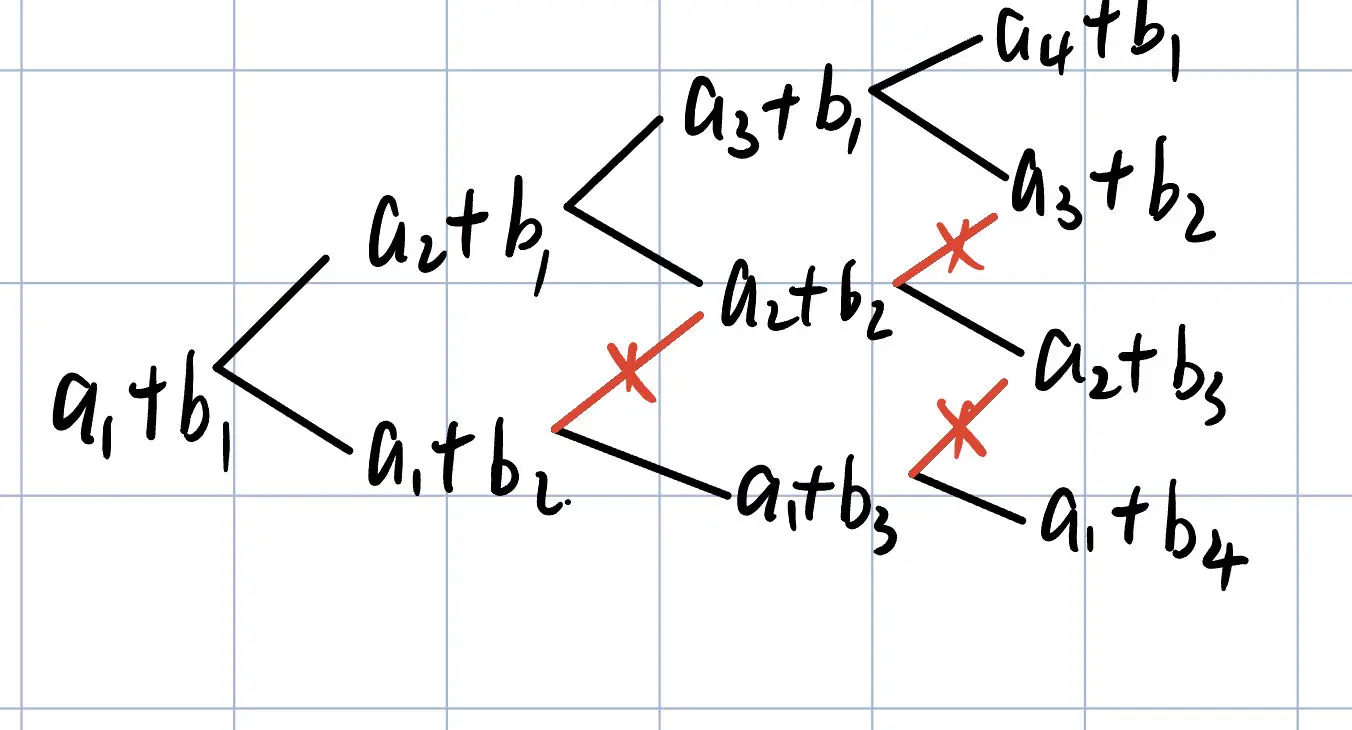 a₄+b₁
a₃+b₁
a₃+b₂
a₂+b₁
a₂+b₂
a₂+b₃
a₁+b₁
a₁+b₂.
a₁+b₃
a₁+b₄